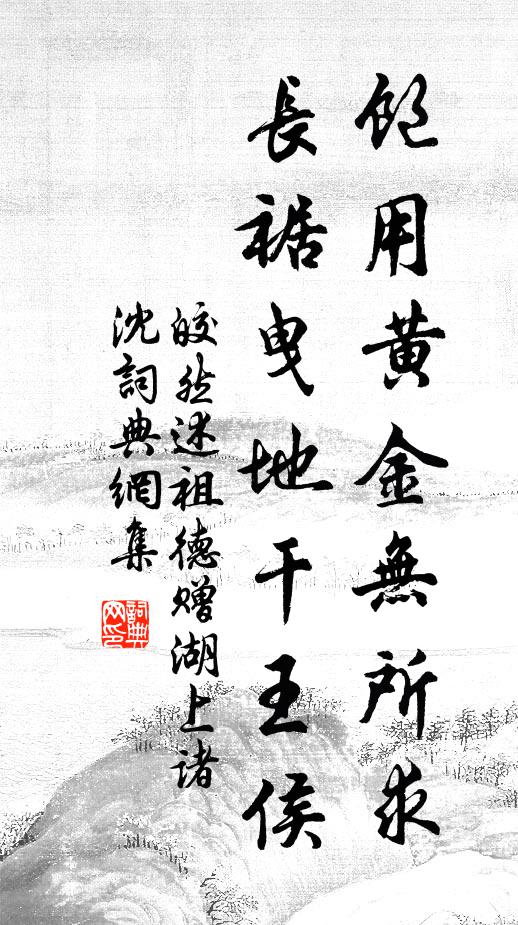 飽用黃金無所求
長裾曳地干王侯
皎然述祖德贈湖上諸
沈詞典網集
詞典网印